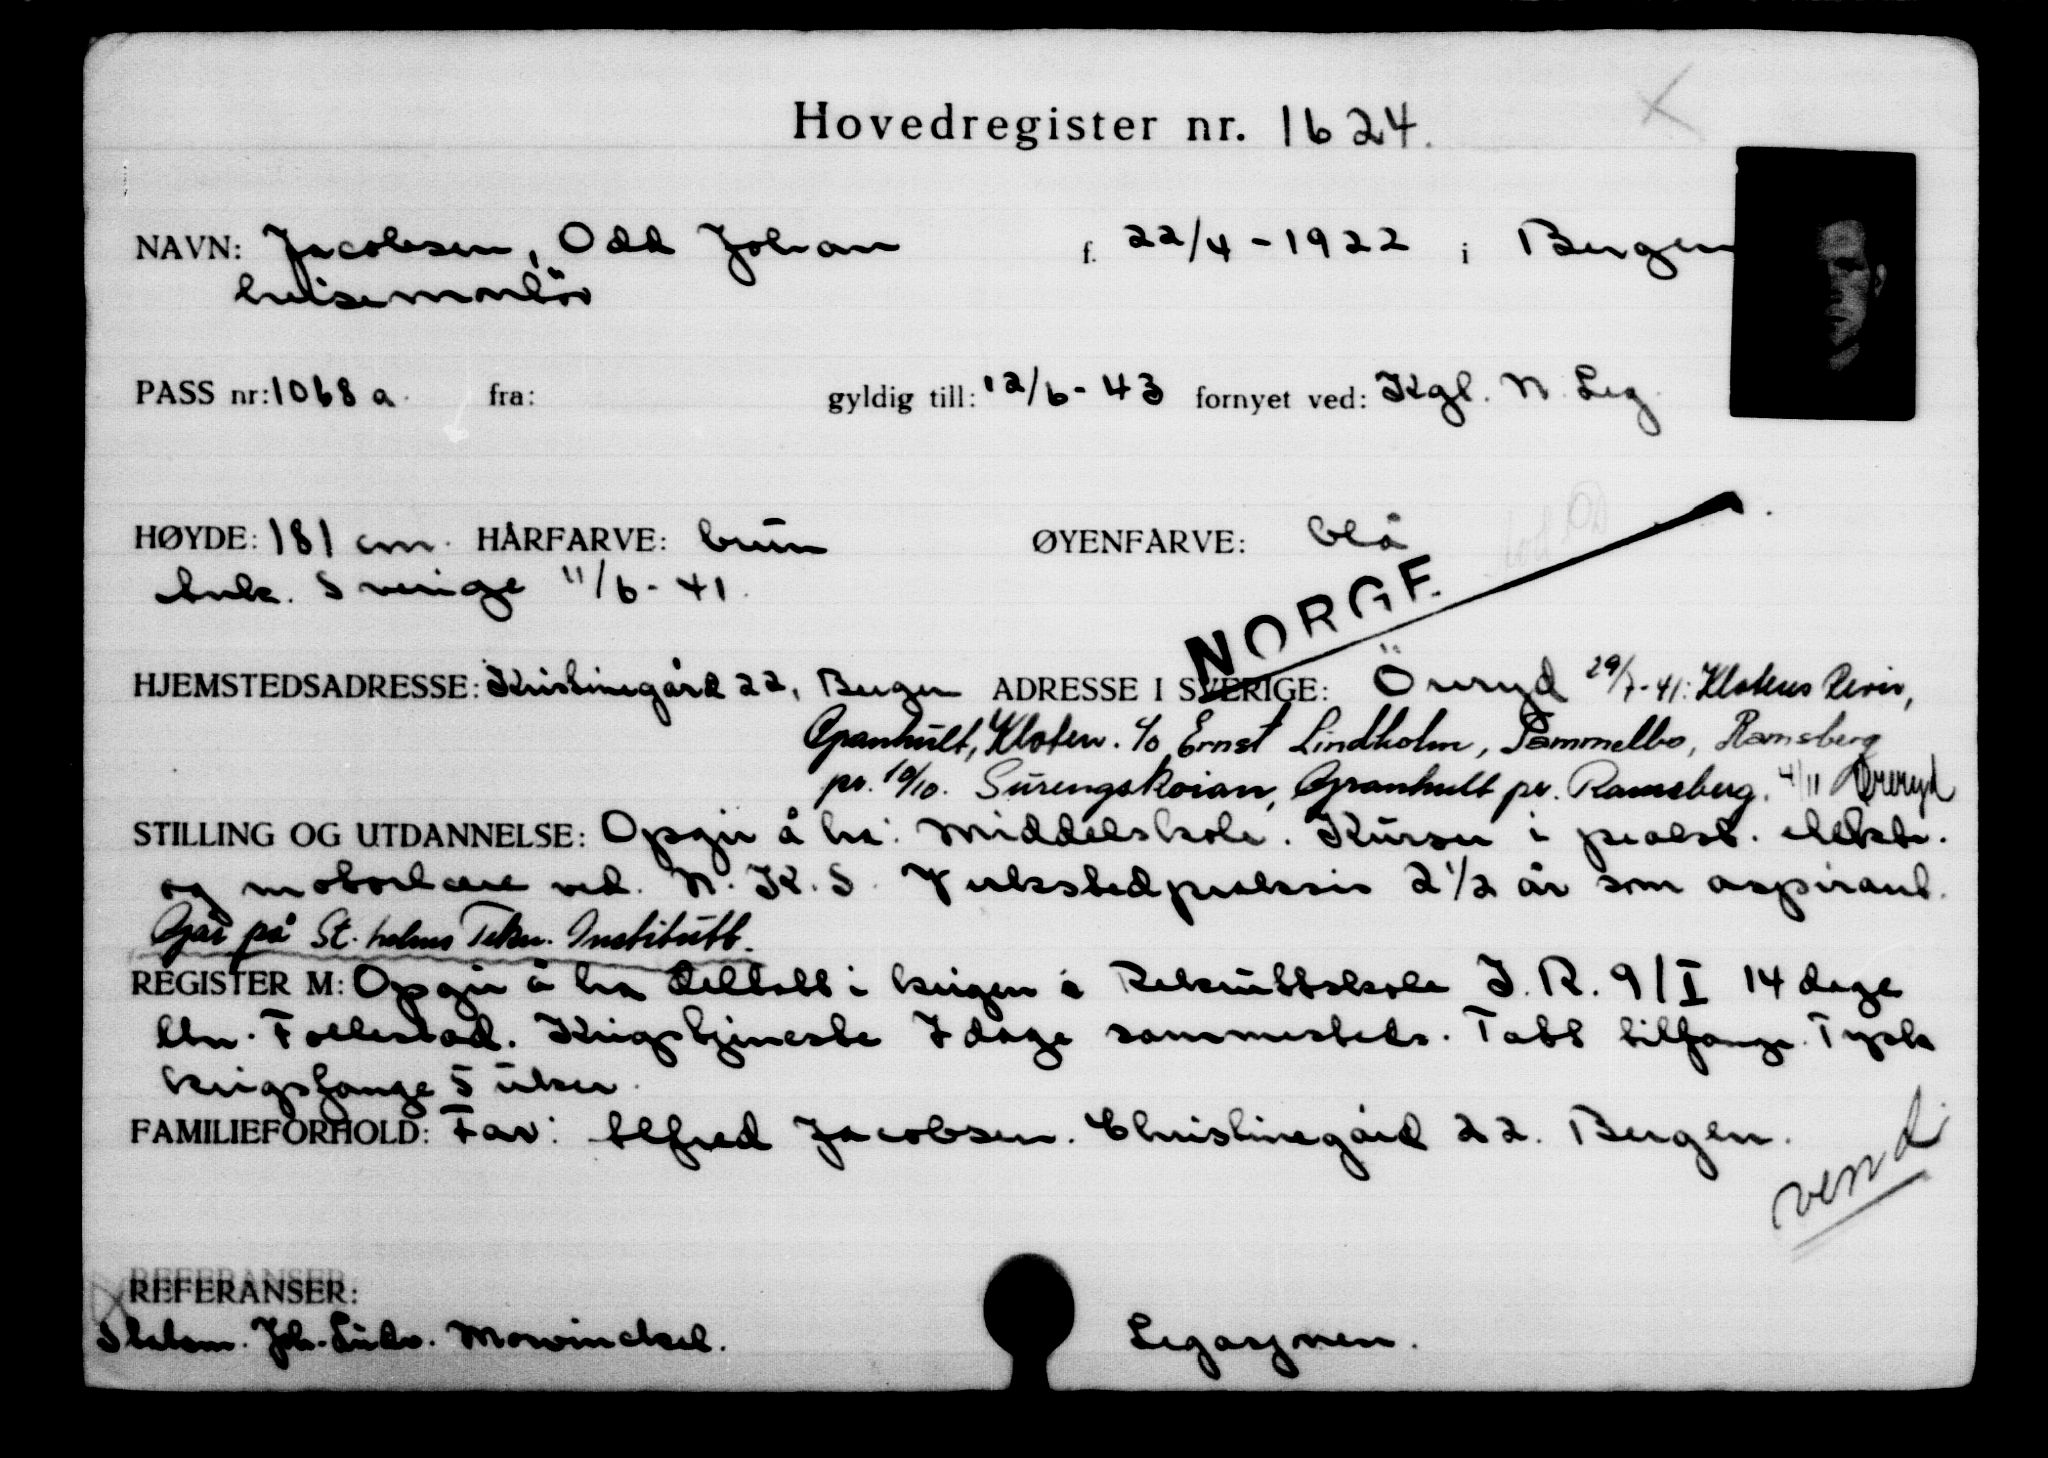 Hovedregister nr. 1624.
NAVN: Jacobsen, Odd Johan f. 22/4-1922 i Bergen
heisemontör
PASS nr: 1068 a. fra: gyldig till: 12/6-43 fornyet ved: Kgl. N. Leg.
HØYDE: 181 cm. HÅRFARVE: brun ØYENFARVE: blå
Ank. Sverige 11/6-41.
NORGE
HJEMSTEDSADRESSE: Kristinegård 22, Bergen ADRESSE I SVERIGE: Öreryd 29/7-41: Klotens Revir,
Granhult, Kloten. c/o Ernst Lindholm, Pammelbo, Ramsberg
pr. 10/10. Surengskoian, Granhult pr. Ramsberg. 4/11 Öreryd
STILLING OG UTDANNELSE: Opgir å ha: Middelskole. Kurser i prakt. elektr.
og motorlære ved N.K.S. Verkstedpraksis 2 1/2 år som aspirant.
Går på St.holms Tekn. Institutt.
REGISTER M: Opgir å ha deltatt i krigen i Rekruttskole I.R. 9/I 14 dage
Follestad. Krigstjeneste 7 dage sammesteds. Tatt tilfange. Tysk
krigsfange 5 uker.
FAMILIEFORHOLD: Far: Alfred Jacobsen. Christinegård 22. Bergen.
vend
REFERANSER:
Statsm. Joh. Ludv. Mowinckel. Legasjonen.